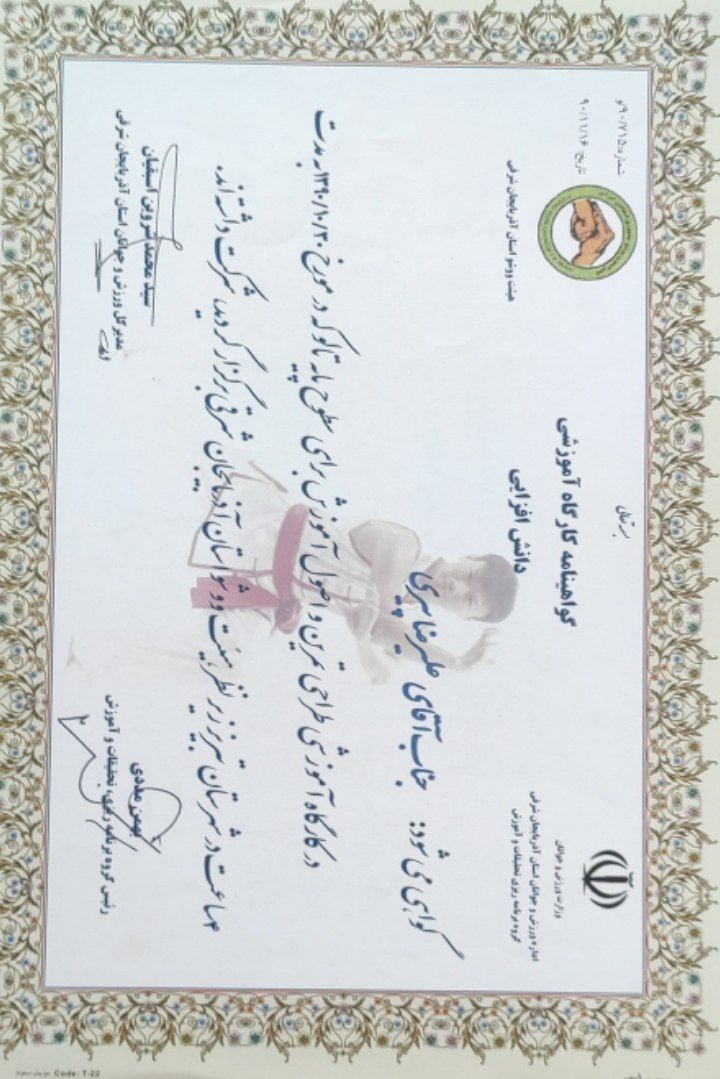 بسمه تعالی
شماره: ۹۰/۷۱۵/و
تاریخ: ۹۰/۱۱/۱۶
هیئت ووشو استان آذربایجان شرقی
وزارت ورزش و جوانان
اداره ورزش و جوانان استان آذربایجان شرقی
گروه برنامه ریزی تحقیقات و آموزش
گواهینامه کارگاه آموزشی
دانش افزایی
گواهی می شود: جناب آقای علیرضا پیری
در کارگاه آموزشی طراحی تمرین و اصول آموزش برای سطوح پایه تالو که در مورخ ۱۳۹۰/۱۰/۳۰ به مدت
۴ ساعت در شهرستان تبریز زیر نظر هیئت ووشو استان آذربایجان شرقی برگزار گردید، شرکت داشته اند.
بهمن مددی
رئیس گروه برنامه ریزی، تحقیقات و آموزش
سید محمد شروین اسبقیان
مدیر کل ورزش و جوانان استان آذربایجان شرقی
Code: T-22